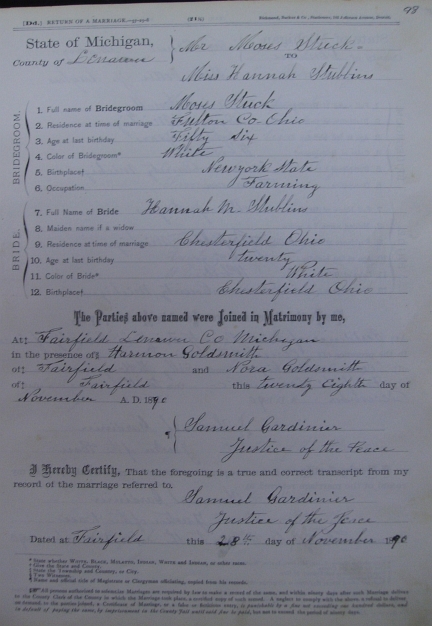 98
[Dd.] RETURN OF A MARRIAGE.
State of Michigan,
County of Lenawee
Mr Moses Stuck
TO
Miss Hannah Stubbins
BRIDEGROOM.
1. Full name of Bridegroom Moses Stuck
2. Residence at time of marriage Fulton Co Ohio
3. Age at last birthday Fifty Six
4. Color of Bridegroom* White
5. Birthplace† Newyork State
6. Occupation Farming
BRIDE.
7. Full Name of Bride Hannah M. Stubbins
8. Maiden name if a widow
9. Residence at time of marriage Chesterfield Ohio
10. Age at last birthday twenty
11. Color of Bride* White
12. Birthplace† Chesterfield Ohio
The Parties above named were Joined in Matrimony by me,
At‡ Fairfield Lenawee Co Michigan
in the presence of§ Harmon Goldsmith
of‡ Fairfield and Nora Goldsmith
of‡ Fairfield this twenty Eighth day of
November A. D. 1890
Samuel Gardinier
Justice of the Peace
I Hereby Certify, That the foregoing is a true and correct transcript from my
record of the marriage referred to.
Samuel Gardinier
Justice of the Peace
Dated at Fairfield this 28th day of November 1890
* State whether WHITE, BLACK, MULATTO, INDIAN, WHITE and INDIAN, or other races.
† Give the State and County.
‡ State the Township and County, or City.
§ Two Witnesses.